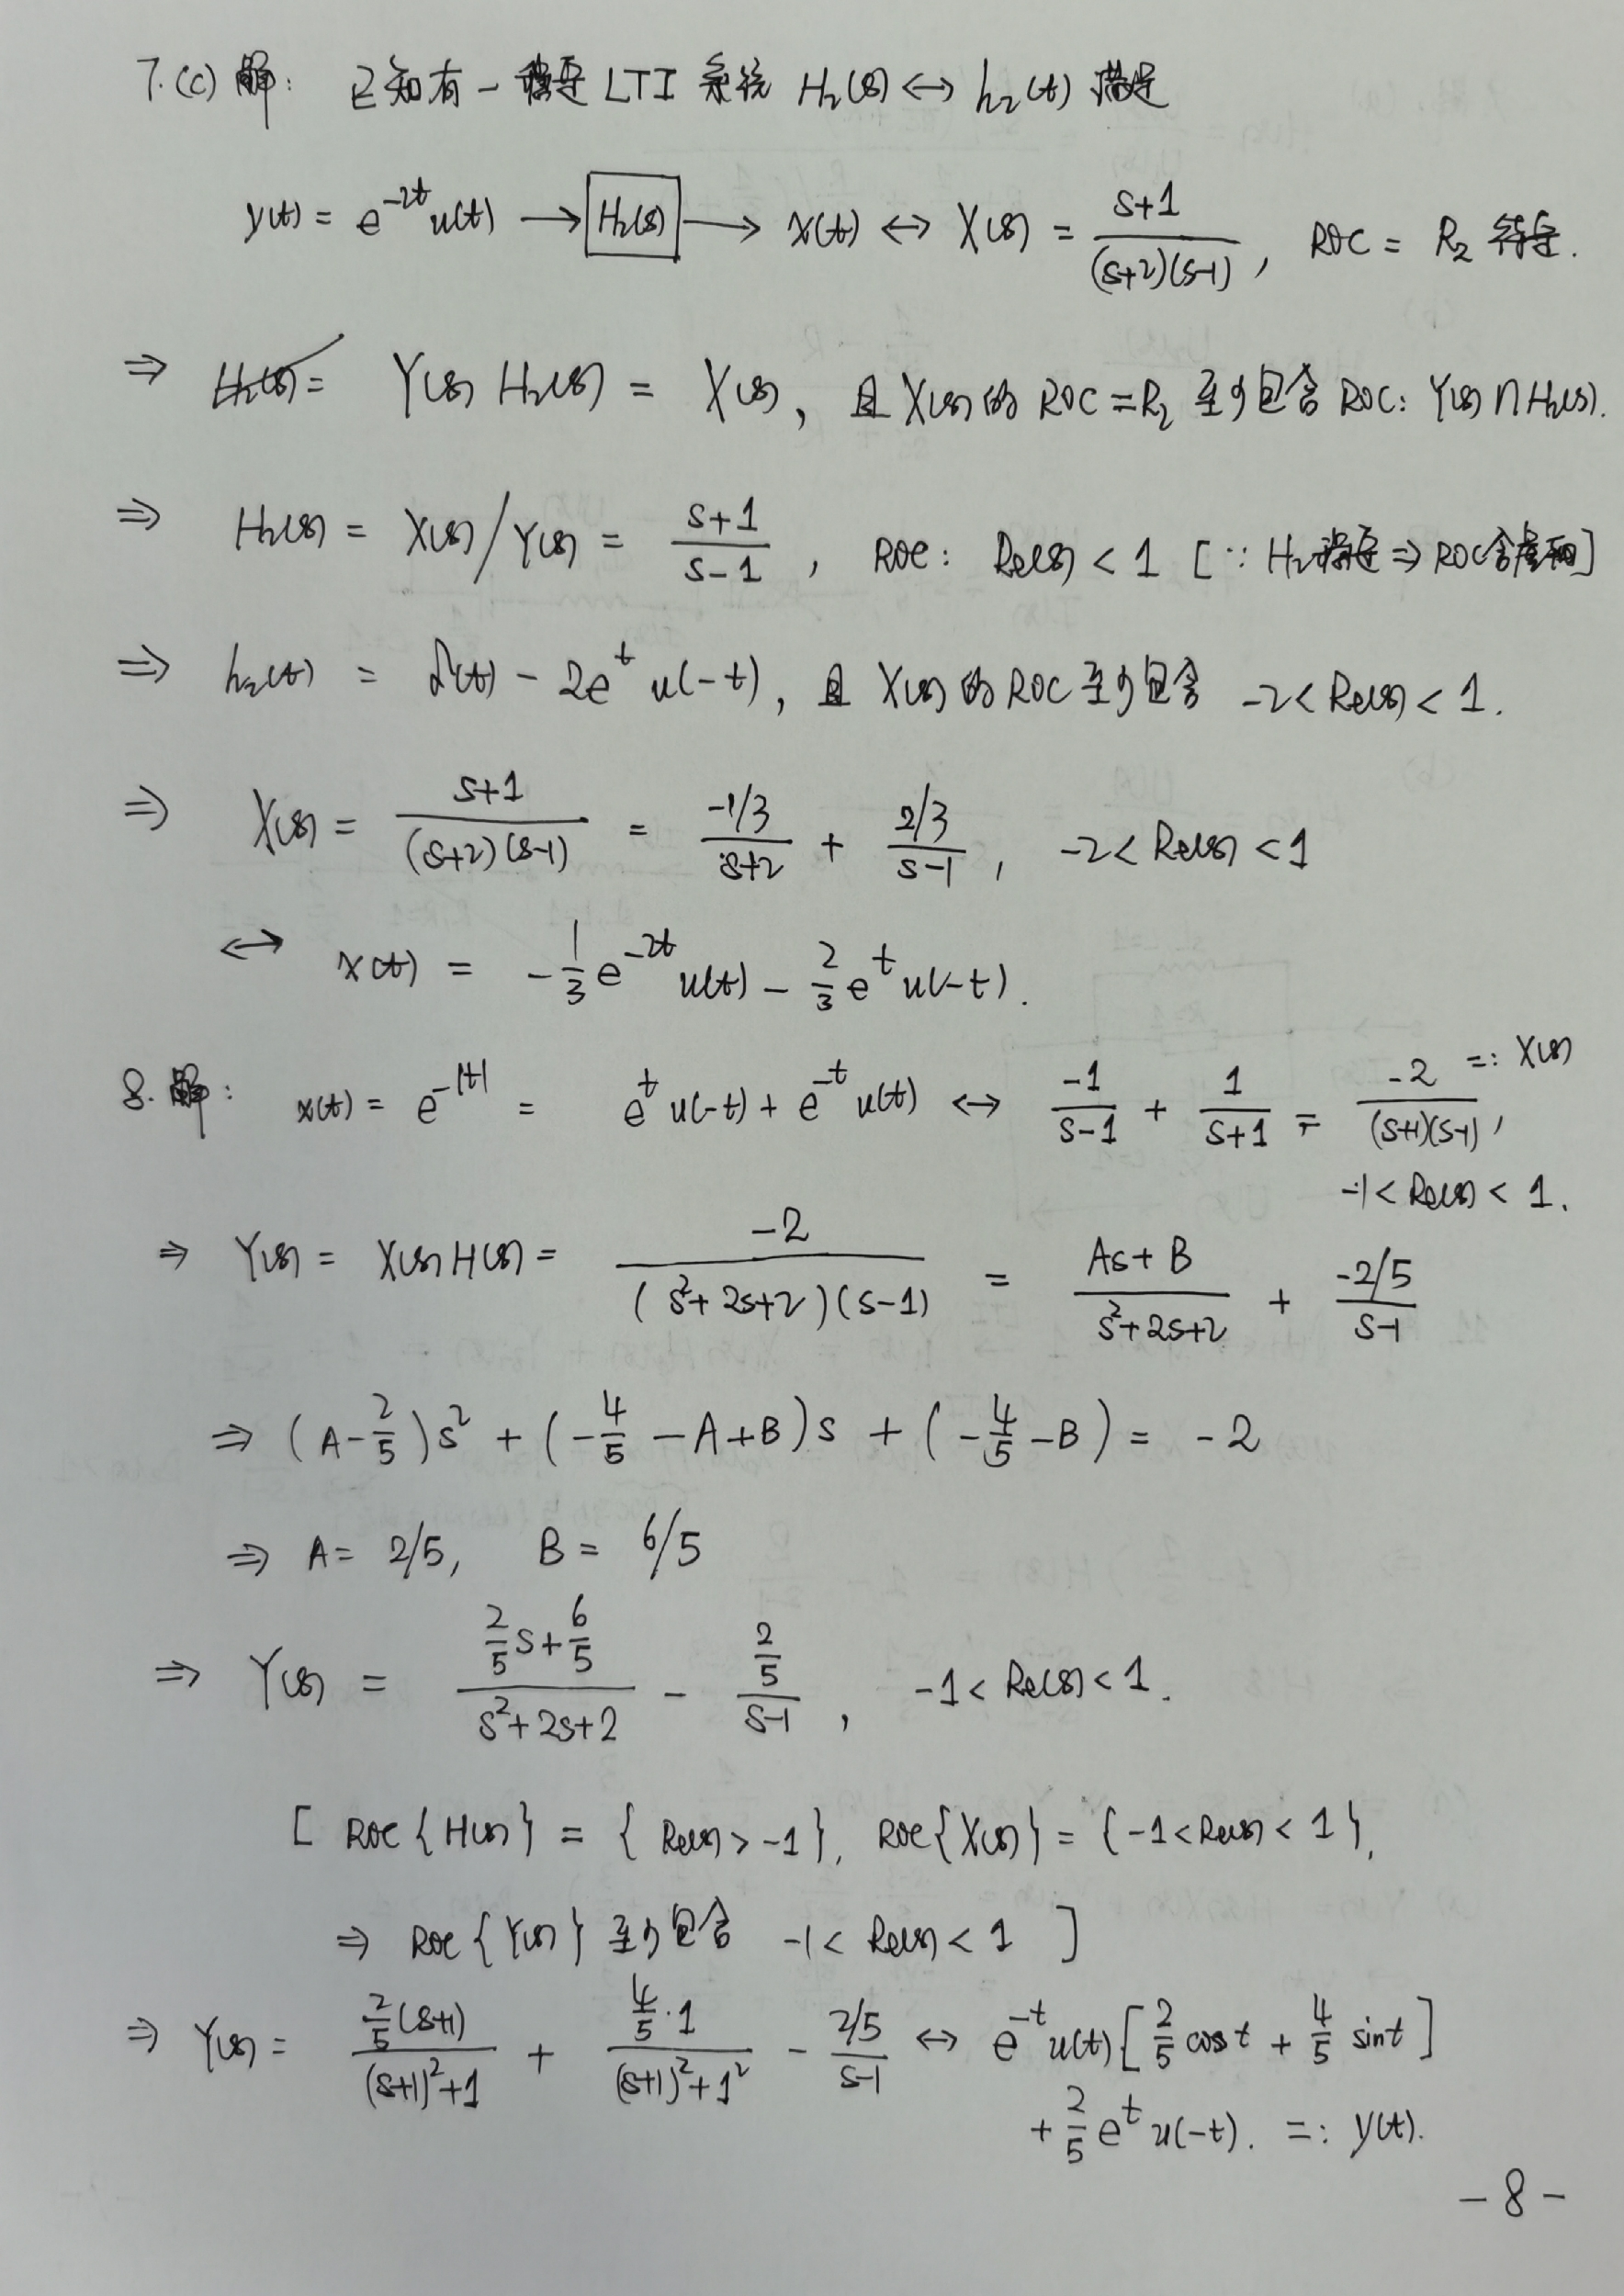 7.(c) 解: 已知有一稳定 LTI 系统 H₂(s) ↔ h₂(t) 满足
y(t) = e^{-2t} u(t) → H₂(s) → x(t) ↔ X(s) = \frac{s+1}{(s+2)(s-1)}, ROC = R₂ 待定.
⇒ Y(s) H₂(s) = X(s), 且 X(s) 的 ROC = R₂ 至少包含 ROC: Y(s) ∩ H₂(s).
⇒ H₂(s) = X(s)/Y(s) = \frac{s+1}{s-1}, ROC: Re(s) < 1 [∵ H₂稳定 ⇒ ROC含虚轴]
⇒ h₂(t) = δ(t) - 2e^{t} u(-t), 且 X(s) 的 ROC 至少包含 -2 < Re(s) < 1.
⇒ X(s) = \frac{s+1}{(s+2)(s-1)} = \frac{-1/3}{s+2} + \frac{2/3}{s-1}, -2 < Re(s) < 1
↔ x(t) = -\frac{1}{3} e^{-2t} u(t) - \frac{2}{3} e^{t} u(-t).
8. 解: x(t) = e^{-|t|} = e^{t} u(-t) + e^{-t} u(t) ↔ \frac{-1}{s-1} + \frac{1}{s+1} = \frac{-2}{(s+1)(s-1)} =: X(s),
-1 < Re(s) < 1.
⇒ Y(s) = X(s) H(s) = \frac{-2}{(s²+2s+2)(s-1)} = \frac{As+B}{s²+2s+2} + \frac{-2/5}{s-1}
⇒ (A - \frac{2}{5}) s² + (-\frac{4}{5} - A + B) s + (-\frac{4}{5} - B) = -2
⇒ A = 2/5, B = 6/5
⇒ Y(s) = \frac{\frac{2}{5}s + \frac{6}{5}}{s²+2s+2} - \frac{\frac{2}{5}}{s-1}, -1 < Re(s) < 1.
[ ROC{H(s)} = { Re(s) > -1 }, ROC{X(s)} = { -1 < Re(s) < 1 },
⇒ ROC{Y(s)} 至少包含 -1 < Re(s) < 1 ]
⇒ Y(s) = \frac{\frac{2}{5}(s+1)}{(s+1)²+1} + \frac{\frac{4}{5}·1}{(s+1)²+1²} - \frac{2/5}{s-1} ↔ e^{-t} u(t) [\frac{2}{5} cos t + \frac{4}{5} sin t]
+ \frac{2}{5} e^{t} u(-t). =: y(t).
- 8 -